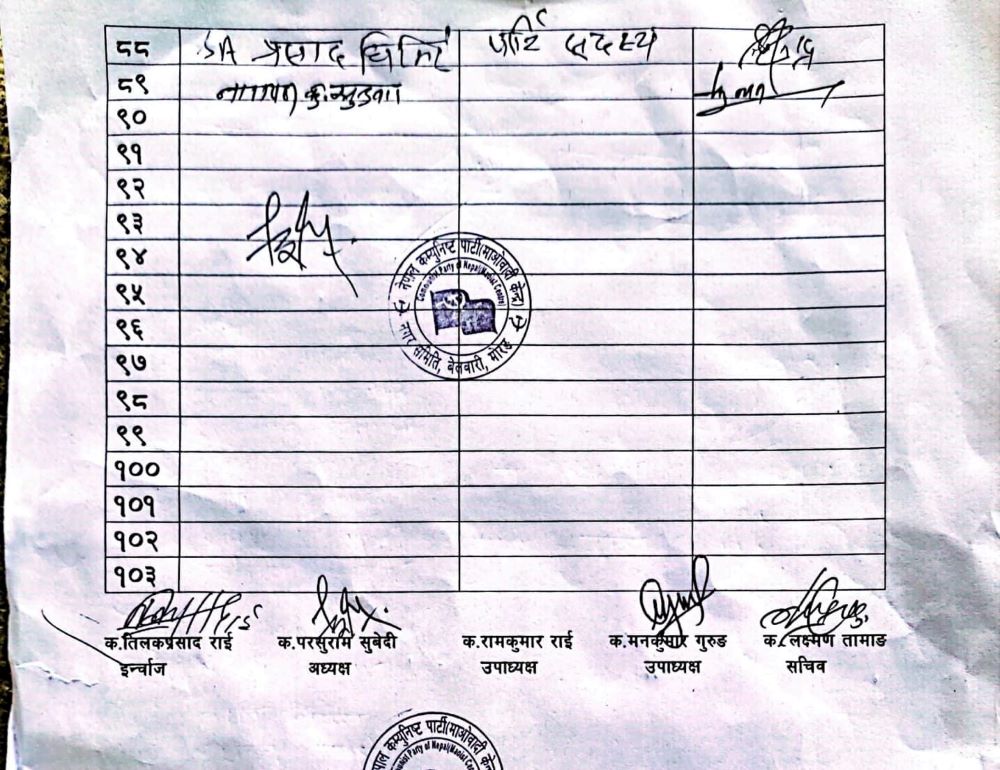 ८८ प्रसाद घिमिरे पार्टि सदस्य
८९
९०
९१
९२
९३
९४
९५
९६
९७
९८
९९
१००
१०१
१०२
१०३
नेपाल कम्युनिष्ट पार्टी(माओवादी केन्द्र)
Communist Party of Nepal(Maoist Centre)
नगर समिति, बेलवारी, मोरङ
क.तिलकप्रसाद राई क.परसुराम सुबेदी क.रामकुमार राई क.मनकुमार गुरुङ क. लक्ष्मण तामाङ
इन्चार्ज अध्यक्ष उपाध्यक्ष उपाध्यक्ष सचिव
कम्युनिष्ट पार्टी(माओवादी
Party of Nepal(Maoist